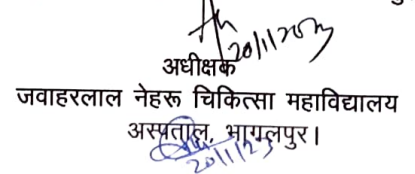 20/1/2023
अधीक्षक
जवाहरलाल नेहरू चिकित्सा महाविद्यालय
अस्पताल, भागलपुर।
20/1/23